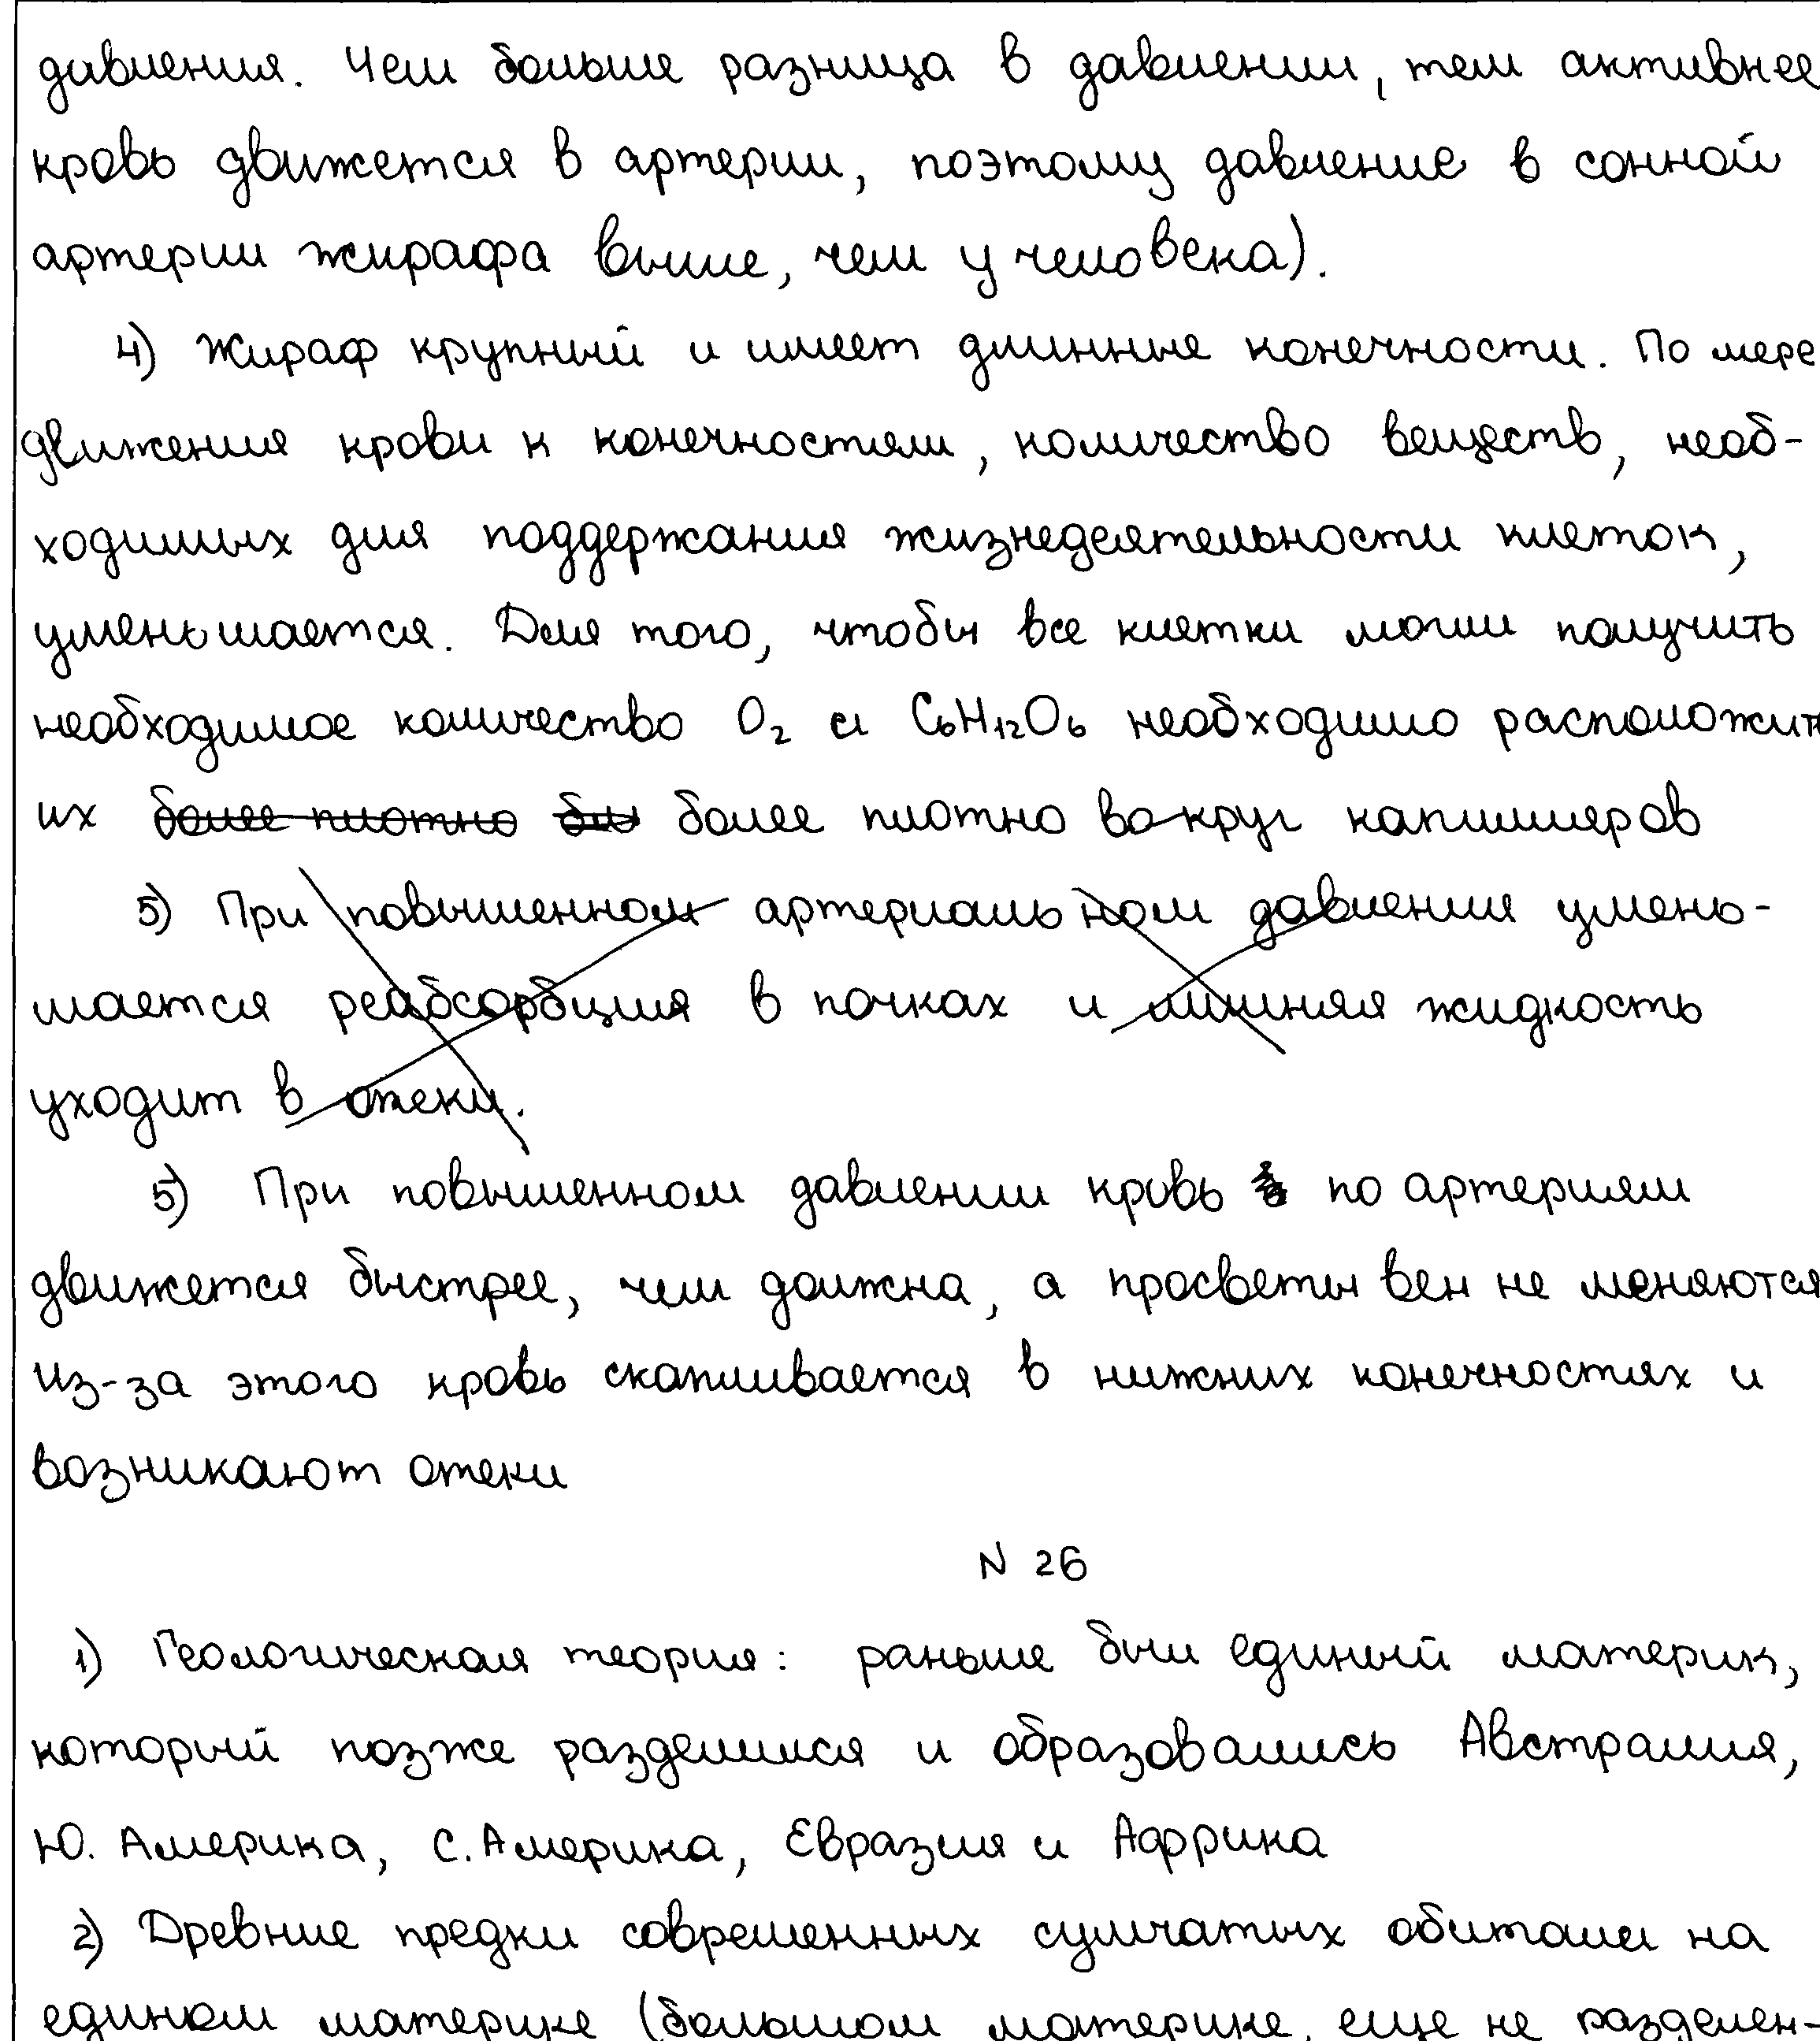 давления. Чем больше разница в давлении, тем активнее
кровь движется в артерии, поэтому давление в сонной
артерии жирафа выше, чем у человека).
4) Жираф крупный и имеет длинные конечности. По мере
движения крови к конечностям, количество веществ, необ-
ходимых для поддержания жизнедеятельности клеток,
уменьшается. Для того, чтобы все клетки могли получить
необходимое количество O₂ и C₆H₁₂O₆ необходимо расположить
их более плотно бы более плотно вокруг капилляров
5) При повышенном артериальном давлении умень-
шается реабсорбция в почках и лишняя жидкость
уходит в отеки.
5) При повышенном давлении кровь по артериям
движется быстрее, чем должна, а просветы вен не меняются
Из-за этого кровь скапливается в нижних конечностях и
возникают отеки
N 26
1) Геологическая теория: раньше был единый материк,
который позже разделился и образовались Австралия,
Ю. Америка, С. Америка, Евразия и Африка
2) Древние предки современных сумчатых обитали на
едином материке (большом материке, еще не разделен-